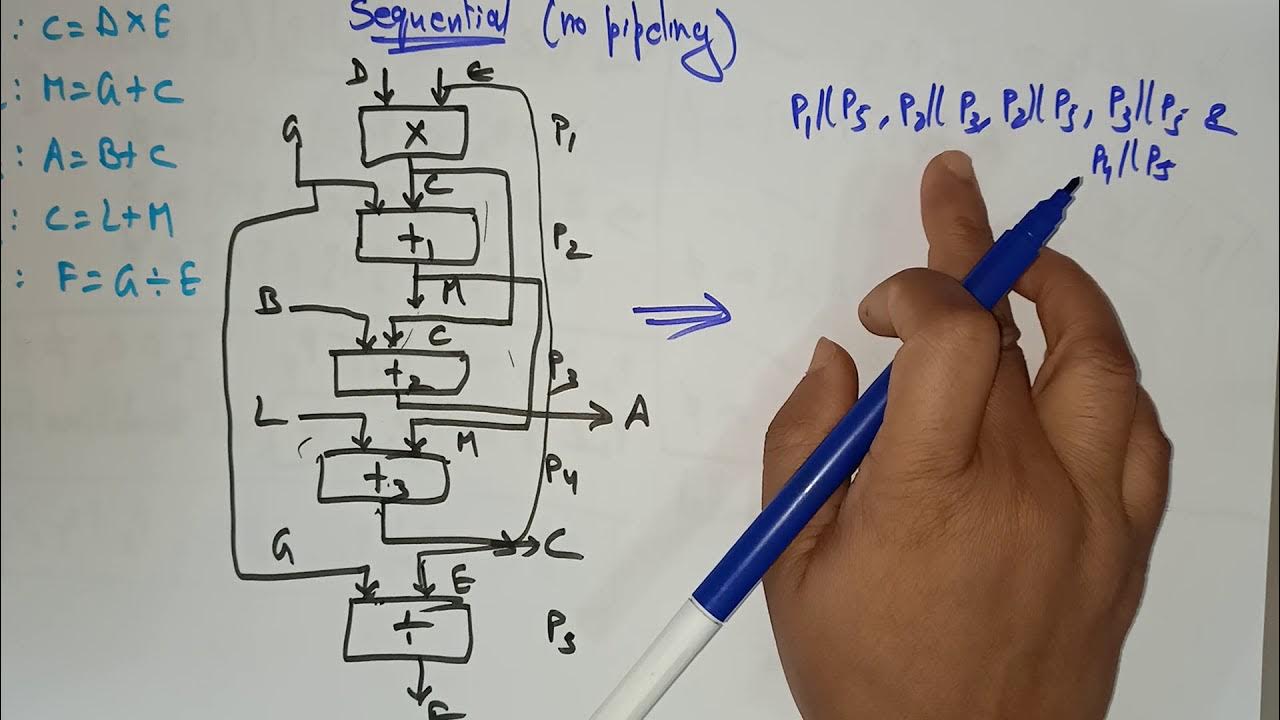 Sequential (no pipeling)
: C = D × E
: M = G + C
: A = B + C
: C = L + M
: F = G ÷ E
D E
× P1
G
C
+1 P2
B M
C
+2 P3
L A
M
+3 P4
G C
E
÷ P5
F
P1 // P5, P2 // P3, P2 // P5, P3 // P5 &
P4 // P5